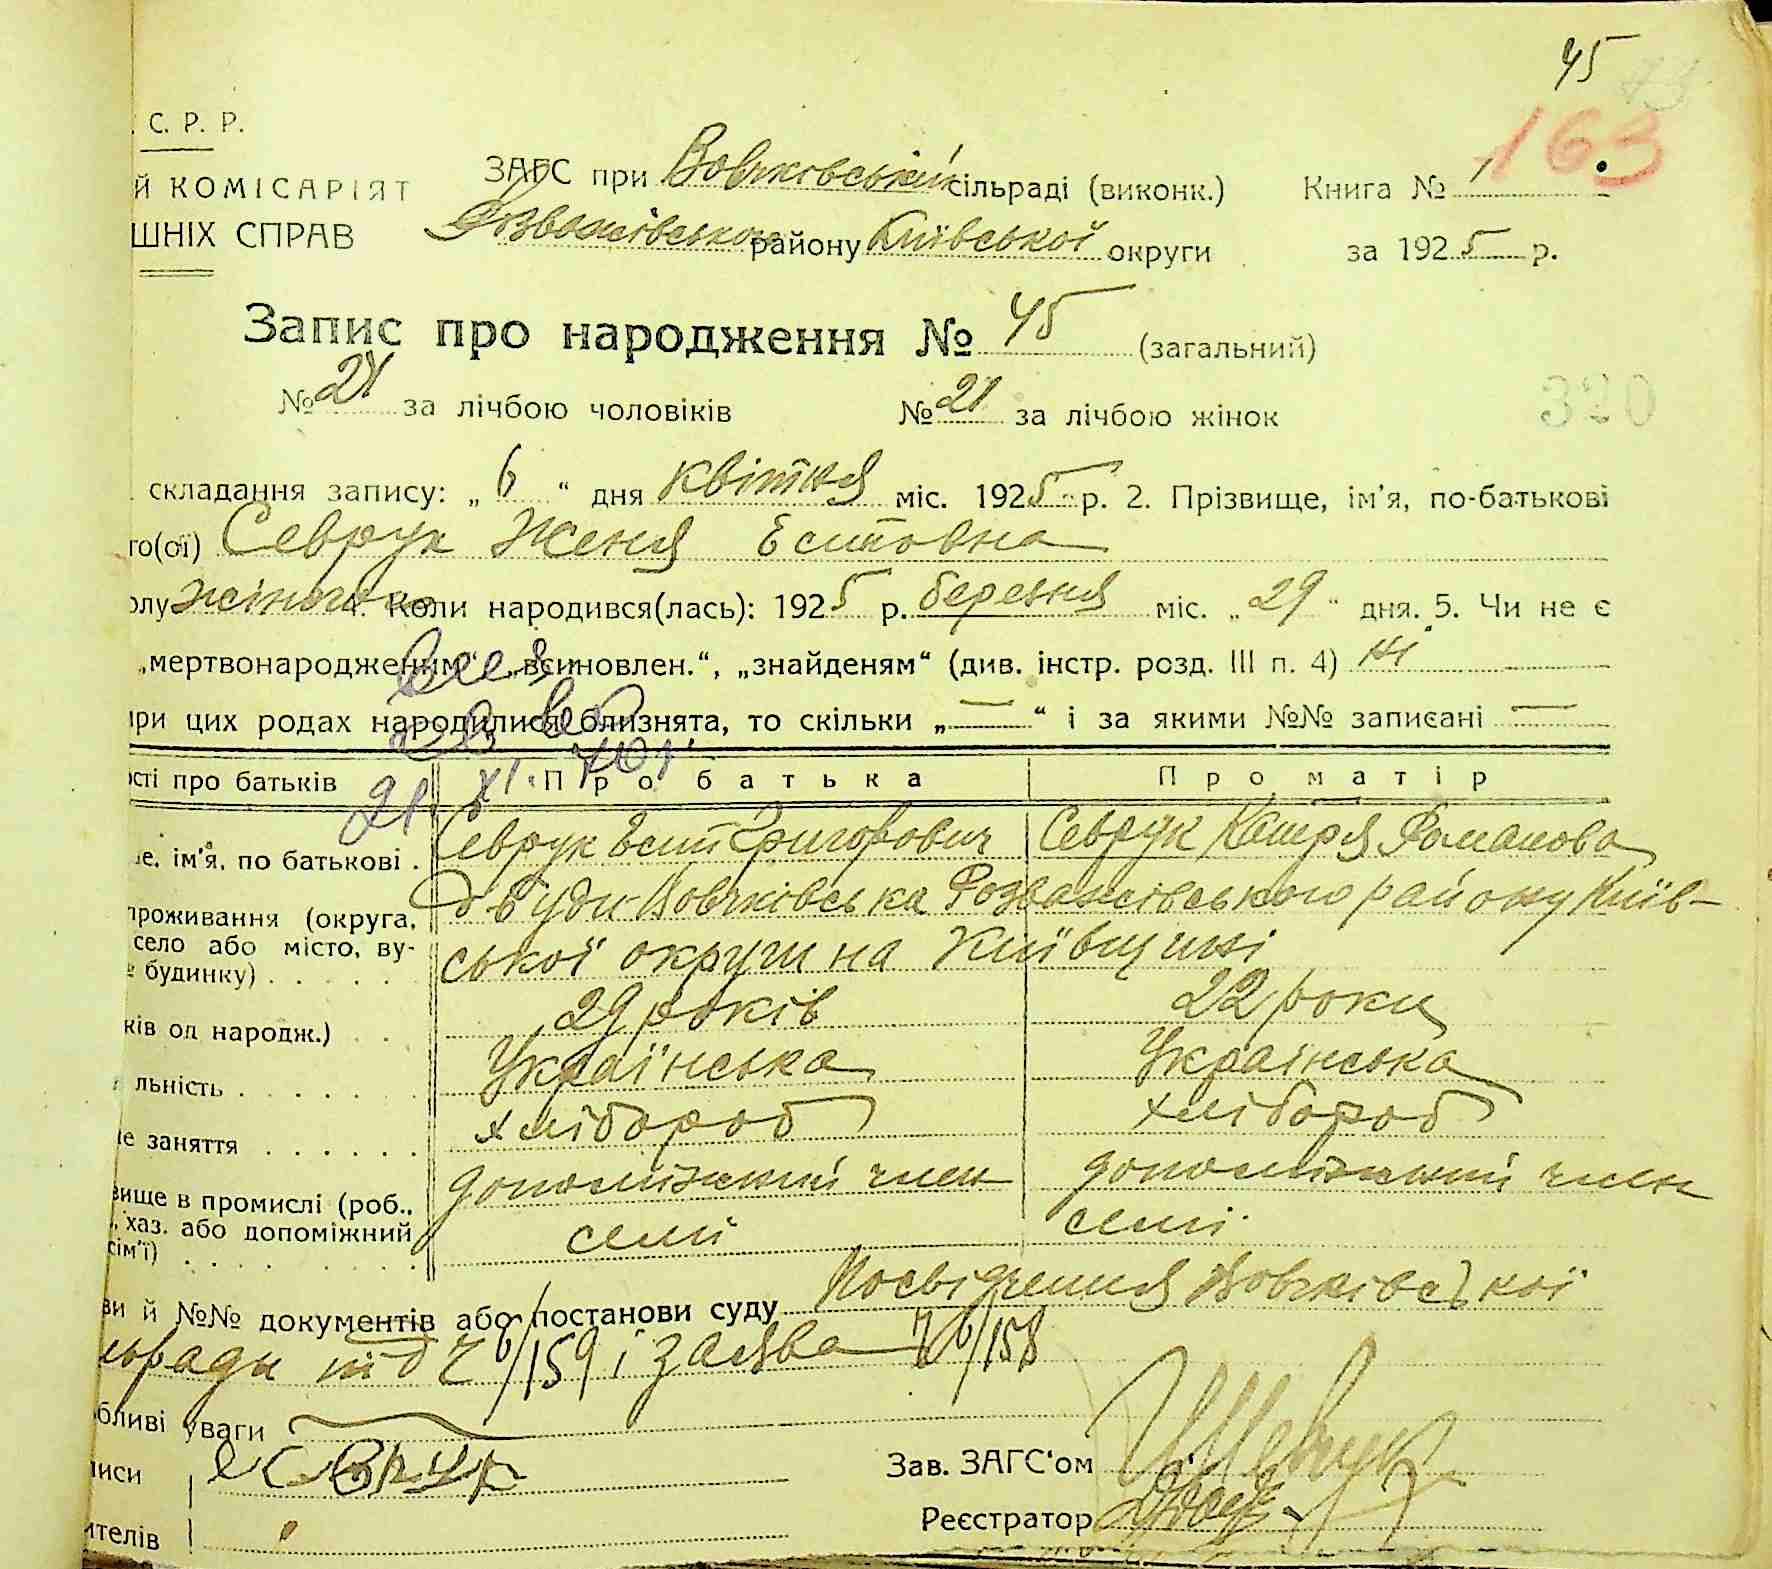 45
163
С. Р. Р.
Й КОМІСАРІЯТ
ШНІХ СПРАВ
ЗАГС при Вовчковській сільраді (виконк.) Книга № 1
Розважівського району Київської округи за 1925 р.
Запис про народження № 45 (загальний)
№ 24 за лічбою чоловіків № 21 за лічбою жінок
320
складання запису: „ 6 “ дня квітня міс. 1925 р. 2. Прізвище, ім'я, по-батькові
го(ої) Севрук Женя Еситовна
олу жіночого 4. Коли народився(лась): 1925 р. березня міс. „ 29 “ дня. 5. Чи не є
„мертвонародженим“ „всиновлен.“, „знайденям“ (див. інстр. розд. III п. 4) ні
при цих родах народилися близнята, то скільки „ — “ і за якими №№ записані —
21. XI.
ості про батьків Про батька Про матір
ве, ім'я, по батькові . Севрук Есип Григорович Севрук Катря Романова
проживання (округа, село або місто, ву- № будинку) . . . . .
Буди-Вовчківська Розважівського району Київ-
ської округи на Київщині
ків од народж.) . . 29 років 22 роки
льність . . . . . . Українська Українська
не заняття . . . . . . хлібороб хлібороб
вище в промислі (роб., хаз. або допоміжний сім'ї) . . . . . .
допоміжний член допоміжний член
семї семї
ви й №№ документів або постанови суду Посвідчення Вовчківської
льради від 6/159 і заява 6/158
бливі уваги
писи Севрук
Зав. ЗАГС'ом Шевчук
ителів
Реєстратор